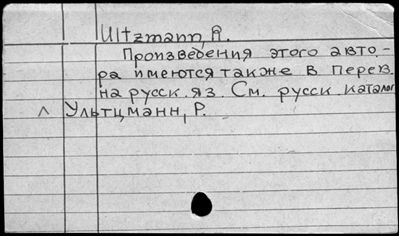 Ultzmann, R.
Произведения этого авто-
ра имеются также в перев.
на русск. яз. См. русск. каталог
^ Ультцманн, Р.